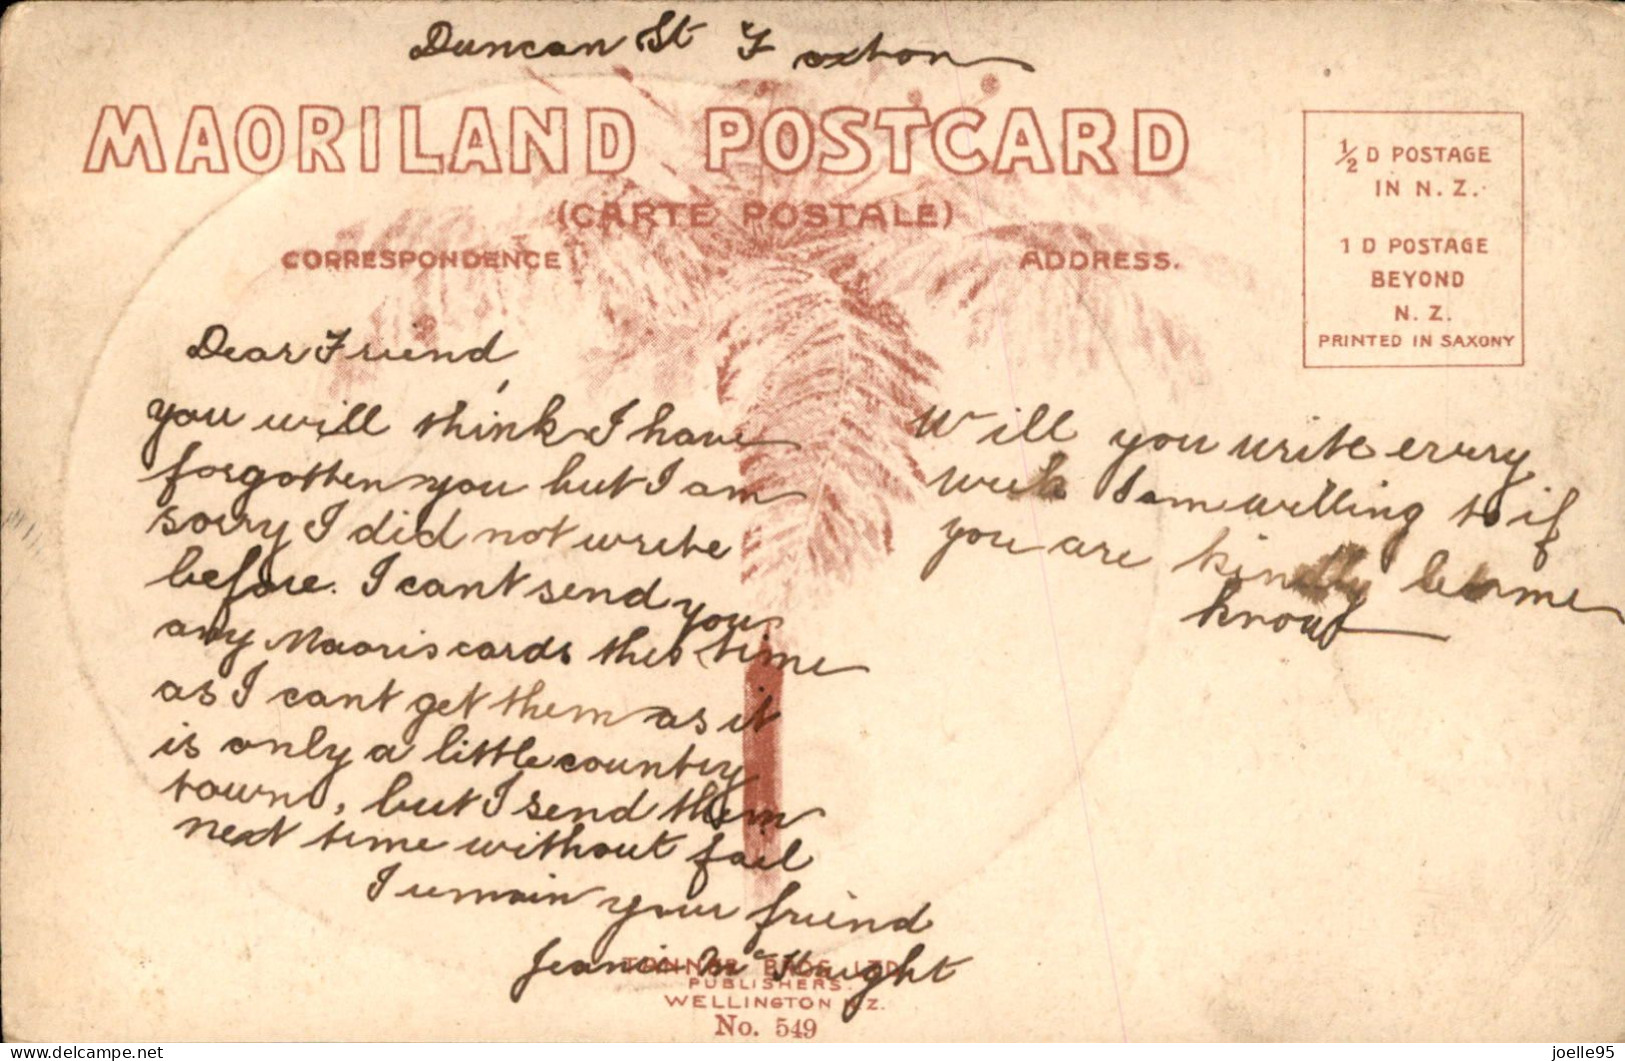 Duncan St Foxton
MAORILAND POSTCARD
(CARTE POSTALE)
CORRESPONDENCE
ADDRESS.
½ D POSTAGE
IN N. Z.
1 D POSTAGE
BEYOND
N. Z.
PRINTED IN SAXONY
Dear Friend
you will think I have
forgotten you but I am
sorry I did not write
before. I cant send you
any Maoris cards this time
as I cant get them as it
is only a little country
town, but I send them
next time without fail
I remain your friend
Mc Knight
Will you write every
week I am willing to if
you are kindly let me
know
TANNER BROS. LTD.
PUBLISHERS.
WELLINGTON N.Z.
No. 549
joelle95